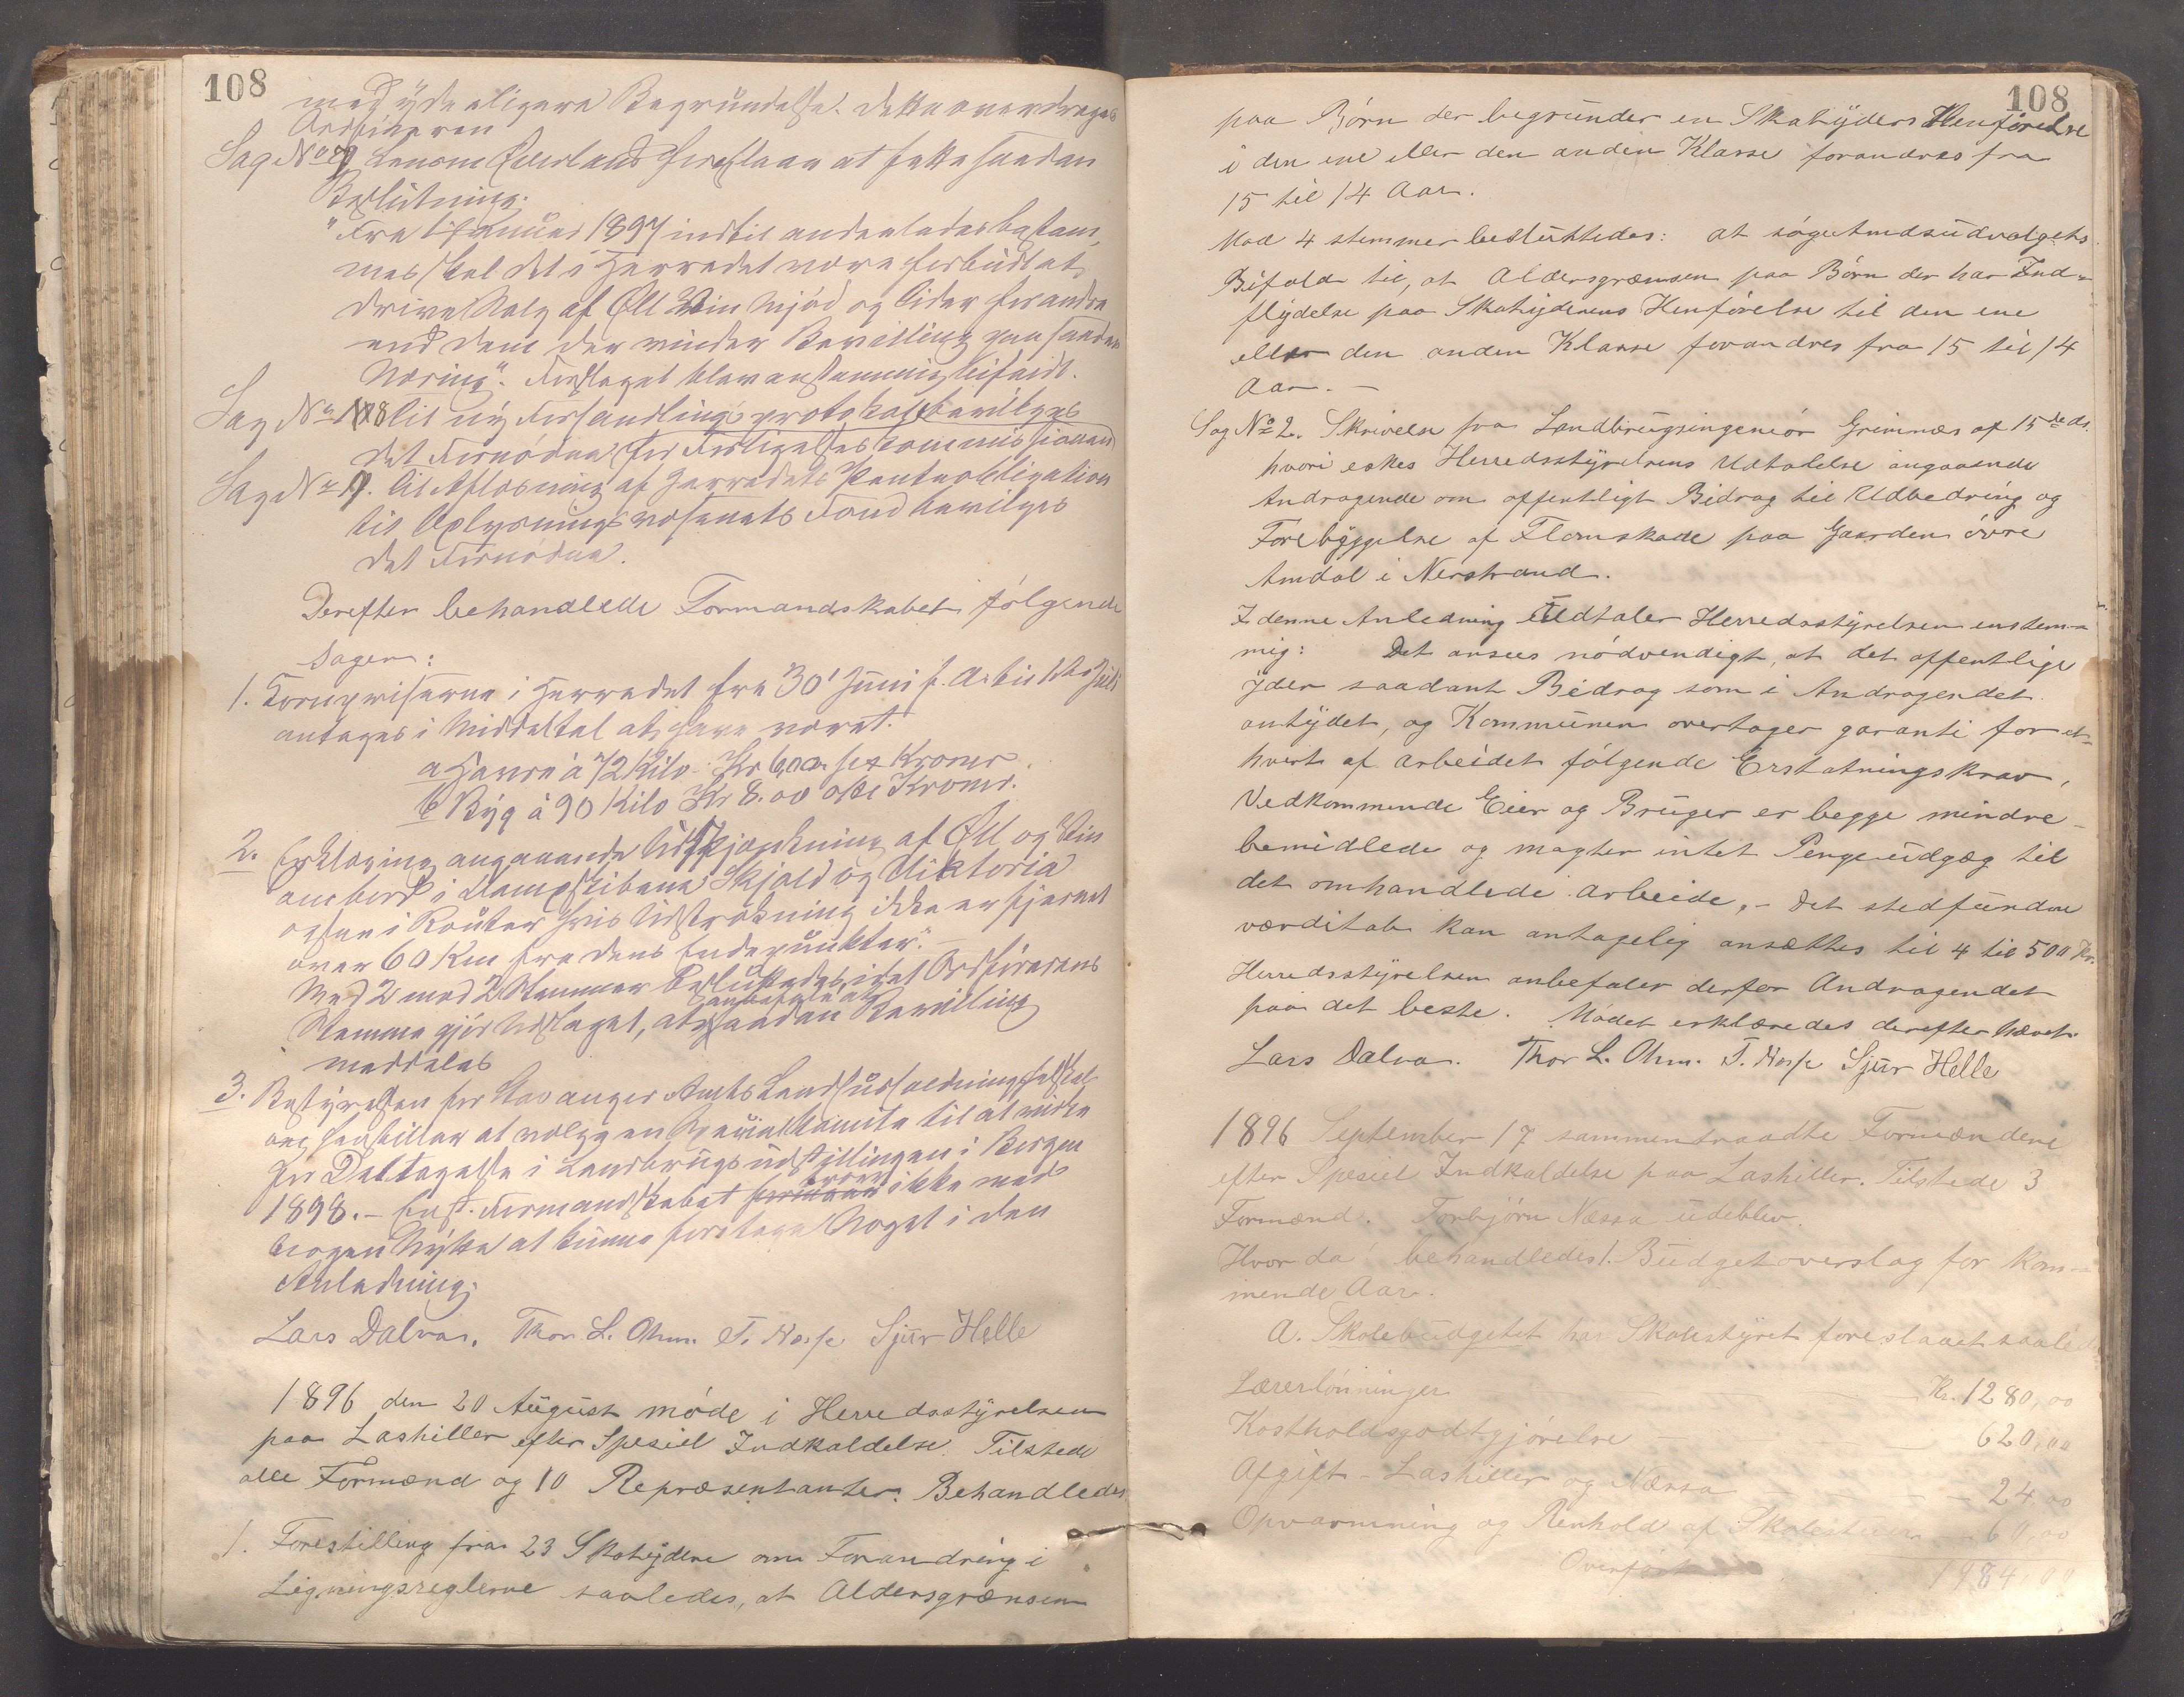 108
med yderligere Begrundelse. Dette overdrages
Ordføreren
Sag No 9 Lensm. foreslaar at fatte saadan
Beslutning:
"Fra 1 Januar 1897 indtil anderledes bestem-
mes skal det i Herredet være forbudt at
drive Salg af Øll Vin Mjød og Sider for andre
end dem der vinder Bevilling paa saadan
Næring". Forslaget blev enstemmig bifaldt.
Sag No 8 til ny Forhandlingsprotokol bevilges
det Fornødne for Forligelseskommissionen
Sag No 9. Til Afløsning af Herredets Panteobligation
til Oplysningsvæsenets Fond bevilges
det Fornødne.
Derefter behandlede Formandskabet følgende
Sager:
1. Kornpriserne i Herredet fra 30' Juni f. A. til 1ste Juli
antages i Middeltal at have været.
a Havre à 72 Kilo Kr 6,00 sex Kroner.
b Byg à 90 Kilo Kr 8.00 otte Kroner.
2. Erklæring angaaende Udskjænkning af Øll og Vin
ombord i Dampskibene Skjold og Viktoria
ogsaa i Router hvis Udstrækning ikke er fjernet
over 60 Km fra dens Endepunkter".
Med 2 mod 2 Stemmer besluttedes, idet Ordførerens
anbefale at
Stemme gjør Udslaget, at saadan Bevilling
meddeles
3. Bestyrelsen for Stavanger Amts Landhusholdningsselskab
henstiller at vælge en Specialkomite til at virke
for Deltagelse i Landbrugsudstillingen i Bergen
1898. – Enst. Formandskabet tror ikke med
nogen Nytte at kunne foretage Noget i den
Anledning.
Lars Dalva. Thor L. Ohm. T. Nesse Sjur Helle
1896 den 20 August møde i Herredsstyrelsen
paa Lashiller efter Spesiel Indkaldelse. Tilstede
alle Formænd og 10 Repræsentanter. Behandledes
1. Forestilling fra 23 Skatydere om Forandring i
Ligningsreglerne saaledes, at Aldersgrænsen
108
paa Børn der begrunder en Skatyders Henførelse
i den ene eller den anden Klasse forandres fra
15 til 14 Aar.
Mod 4 stemmer besluttedes: at søge Amdsudvalgets
Bifald til, at Aldersgrænsen paa Børn der har Ind-
flydelse paa Skatyderens Henførelse til den ene
eller den anden Klasse forandres fra 15 til 14
Aar. –
Sag No 2. Skrivelse fra Landbrugsingeniør Grimnæs af 15de ds.
hvori eskes Herredsstyrelsens Udtalelse angaaende
Andragende om offentligt Bidrag til Udbedring og
Forebyggelse af Flomskade paa Gaarden øvre
Amdal i Nerstrand.
I denne Anledning Udtaler Herredsstyrelsen enstem-
mig: Det ansees nødvendigt, at det offentlige
yder saadant Bidrag som i Andragendet
antydet, og Kommunen overtager garanti for et-
hvert af arbeidet følgende Erstatningskrav,
Vedkommende Eier og Bruger er begge mindre-
bemidlede og magter intet Pengeudgæg til
det omhandlede arbeide, – det stedfundne
værditab kan antagelig ansættes til 4 til 500 Kr.
Herredsstyrelsen anbefaler derfor Andragendet
paa det beste. Mødet erklæredes derefter hævet.
Lars Dalva. Thor L. Ohm. T. Nesse Sjur Helle
1896 September 17 sammentraadte Formændene
efter Spesiel Indkaldelse paa Lashiller. Tilstede 3
Formænd. Torbjørn Nessa udeblev.
Hvor da behandledes 1. Budgetoverslag for kom-
mende Aar.
A. Skolebudgetet har Skolestyret foreslaaet saaledes
Lærerlønninger Kr. 1280,00
Kostholdsgodtgjørelse 620,00
Afgift – Lashiller og Nessa 24,00
Opvarmning og Renhold af 60,00
Overført 1984,00